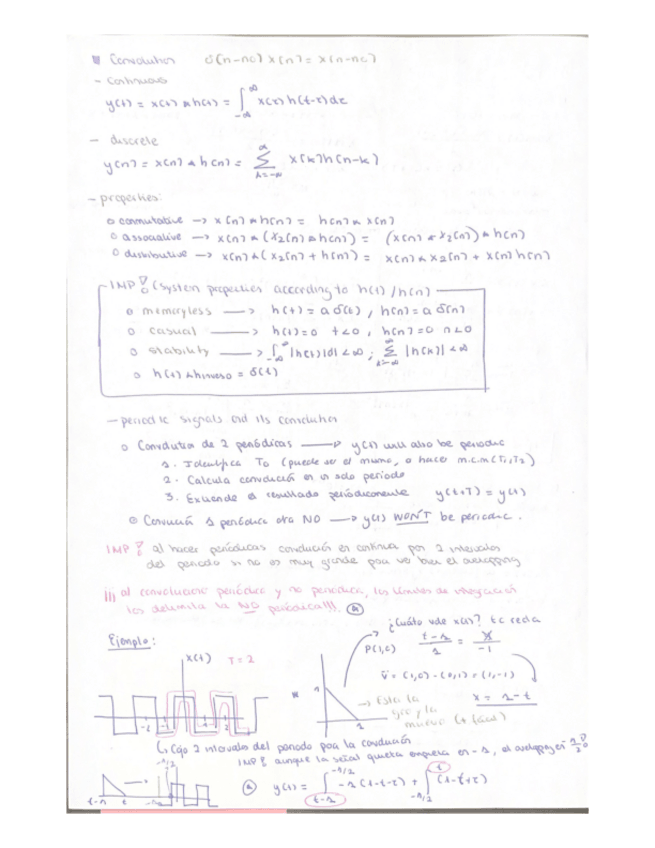 Convolution δ[n-no] x[n] = x[n-no]
- Continuous
y(t) = x(t) * h(t) = ∫_{-∞}^{∞} x(τ) h(t-τ) dτ
- discrete
y[n] = x[n] * h[n] = Σ_{k=-∞}^{∞} x[k] h[n-k]
- properties:
o conmutative → x[n] * h[n] = h[n] * x[n]
o associative → x[n] * (x2[n] * h[n]) = (x[n] * x2[n]) * h[n]
o distributive → x[n] * (x2[n] + h[n]) = x[n] * x2[n] + x[n] h[n]
IMP! (System properties according to h(t) / h[n]
o memoryless → h(t) = a δ(t), h[n] = a δ[n]
o casual → h(t) = 0 t<0, h[n] = 0 n<0
o stability → ∫_{-∞}^{∞} |h(t)| dt < ∞ ; Σ_{k=-∞}^{∞} |h[k]| < ∞
o h(t) * hinverso = δ(t)
- periodic signals and its convolution
o Convolución de 2 periódicas → y(t) will also be periodic
1. Identifica To (puede ser el mismo, o hacer m.c.m (T1,T2)
2. Calcula convolución en un solo periodo
3. Extiende el resultado periódicamente y(t+T) = y(t)
o Convolución 1 periódica otra NO → y(t) WON'T be periodic.
IMP! al hacer periódicas convolución en continua por 2 intervalos
del periodo si no es muy grande para ver bien el overlapping
¡¡¡ al convolucionar periódica y no periodica, los límites de integración
los delimita la NO periódica!!!. (a)
¿Cuánto vale x(t)? Ec recta
Ejemplo:
x(t) T=2
P(1,0) (t-1)/1 = x/-1
v = (1,0) - (0,1) = (1,-1)
x = 1-t
→ Esta la
giro y la
muevo (+ fácil)
↳ Cojo 2 intervalos del periodo para la convolución
IMP! aunque la señal empiece en -1, el overlapping en 1/2!
t-1 t
(a) y(t) = ∫_{t-1}^{-1/2} -1 (1-t-τ) + ∫_{-1/2}^{t} (1-t+τ)